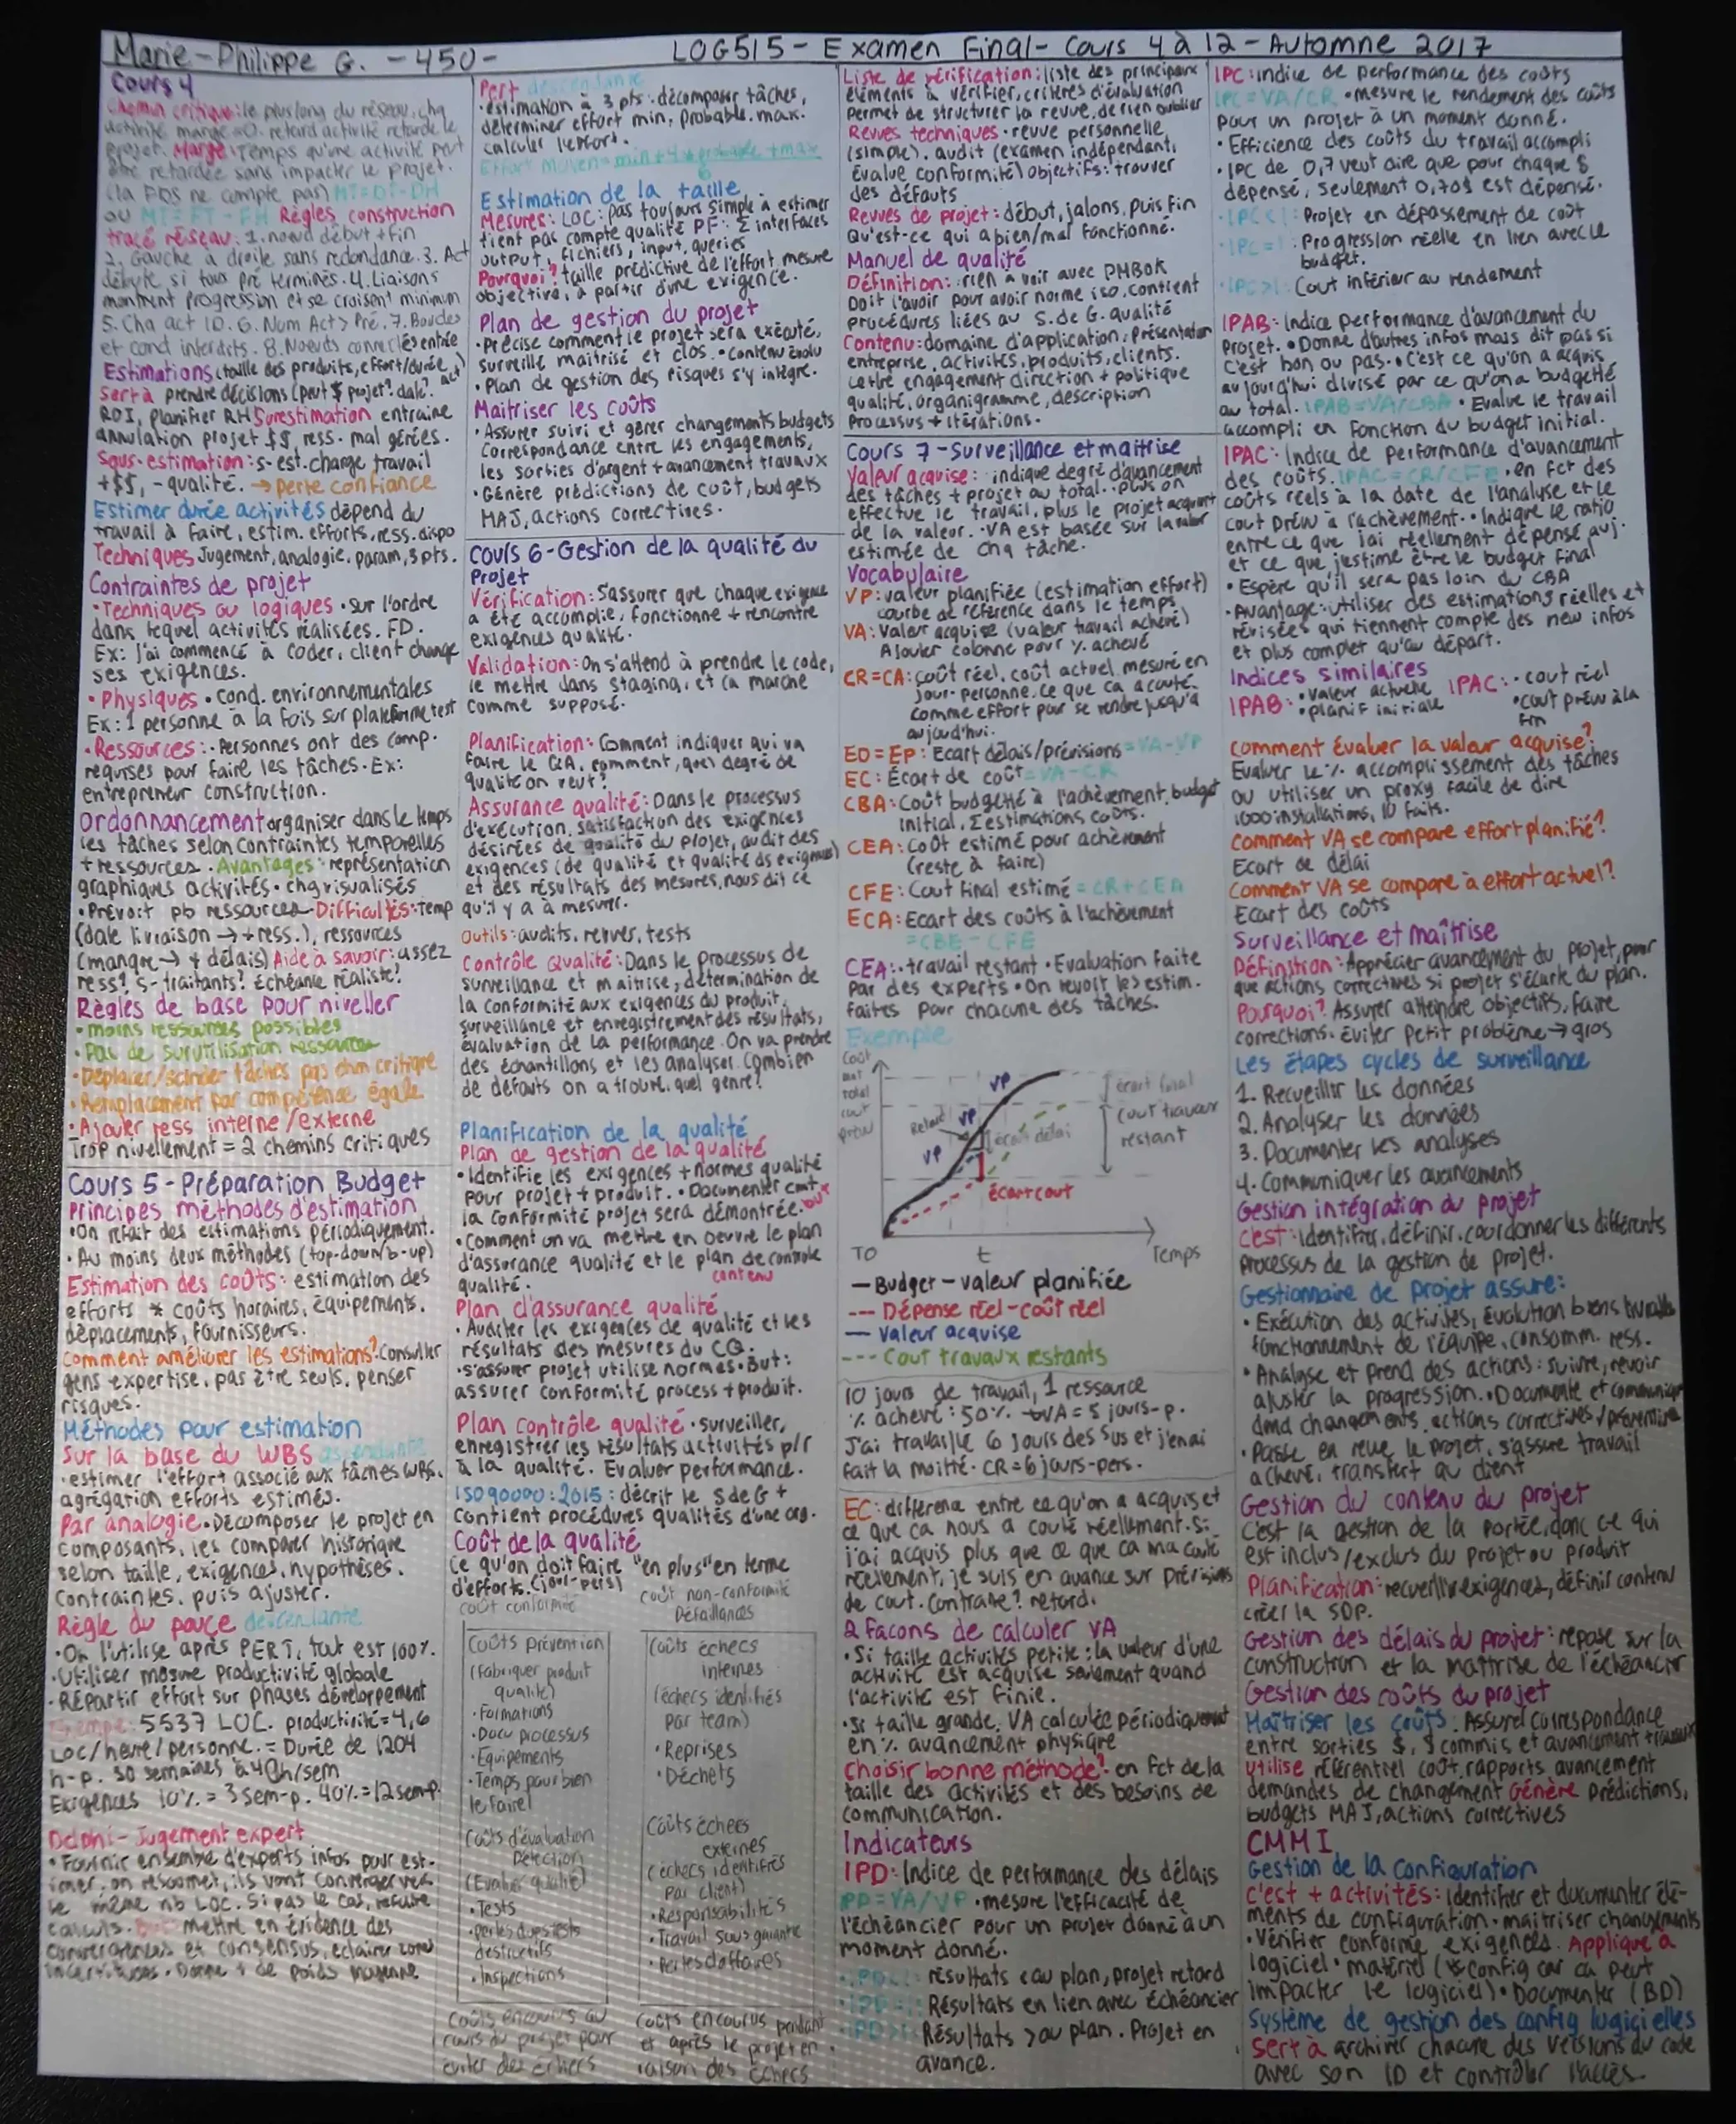 Marie-Philippe G. - 450-
LOG515 - Examen Final - Cours 4 à 12 - Automne 2017
Cours 4
Chemin critique: le plus long du réseau, chq
activité marge=0. retard activité retarde le
projet. Marge: Temps qu'une activité peut
être retardée sans impacter le projet.
(la FDS ne compte pas) MT=DT-DH
ou MT=FT-FH Règles construction
tracé réseau: 1. noeud début + fin
2. Gauche à droite sans redondance. 3. Act
débute si tous pré terminés. 4. Liaisons
montrent progression et se croisent minimum
5. Chq act ID. 6. Num Act > Pré. 7. Boucles
et cond interdits. 8. Noeuds connectés entrée
Estimations (taille des produits, effort/durée, act)
Sert à prendre décisions (peut $ projet? date?
ROI, planifier RH Surestimation entraine
annulation projet $$ ress. mal gérées.
Sous-estimation: s-est. charge travail
+$$, - qualité. → perte confiance
Estimer durée activités dépend du
travail à faire, estim. efforts, ress. dispo
Techniques Jugement, analogie, param, 3 pts.
Contraintes de projet
• Techniques ou logiques • sur l'ordre
dans lequel activités réalisées. FD.
Ex: J'ai commencé à coder, client change
ses exigences.
• Physiques • cond. environnementales
Ex: 1 personne à la fois sur plateforme test
• Ressources: • Personnes ont des comp.
requises pour faire les tâches • Ex:
entrepreneur construction.
Ordonnancement organiser dans le temps
les tâches selon contraintes temporelles
+ ressources • Avantages: représentation
graphiques activités • chg visualisés
• Prévoit pb ressources Difficultés: temp
(date livraison → + ress.), ressources
(manque → + délais) Aide à savoir: assez
ress? s-traitants? Échéance réaliste?
Règles de base pour niveller
• moins ressources possibles
• Pas de surutilisation ressources
• Déplacer/scinder tâches pas chm critique
• Remplacement par compétence égale
• Ajouter ress interne/externe
Trop nivellement = 2 chemins critiques
Cours 5 - Préparation Budget
Principes méthodes d'estimation
• On refait des estimations périodiquement.
• Au moins deux méthodes (top-down/b-up)
Estimation des coûts: estimation des
efforts * coûts horaires, équipements,
déplacements, fournisseurs.
Comment améliorer les estimations? Consulter
gens expertise, pas être seuls, penser
risques.
Méthodes pour estimation
Sur la base du WBS ascendante
• estimer l'effort associé aux tâches WBS.
agrégation efforts estimés.
Par analogie • Décomposer le projet en
composants, les comparer historique
selon taille, exigences, hypothèses,
contraintes, puis ajuster.
Règle du pouce descendante
• On l'utilise après PERT, tout est 100%.
• Utiliser mesure productivité globale
• Répartir effort sur phases développement
Exemple: 5537 LOC. productivité = 4,6
LOC/heure/personne. = Durée de 1204
h-p. 30 semaines à 40h/sem
Exigences 10% = 3 sem-p. 40% = 12 sem-p.
Delphi - Jugement expert
• Fournir ensemble d'experts infos pour est-
imer, on resoumet, ils vont converger vers
le même nb LOC. Si pas le cas, refaire
calculs. But mettre en évidence des
convergences et consensus, éclairer zone
incertitudes • Donne + de poids moyenne
Pert descendante
• estimation à 3 pts: décomposer tâches,
déterminer effort min, probable, max.
calculer l'effort.
Effort moyen = min + 4 * probable + max
6
Estimation de la taille
Mesures: LOC: pas toujours simple à estimer
tient pas compte qualité PF: Σ interfaces
output, fichiers, input, queries
Pourquoi? taille prédictive de l'effort, mesure
objective, à partir d'une exigence.
Plan de gestion du projet
• Précise comment le projet sera exécuté,
surveillé maîtrisé et clos. • Contenu évolu
• Plan de gestion des risques s'y intègre.
Maitriser les coûts
• Assurer suivi et gérer changements budgets
correspondance entre les engagements,
les sorties d'argent + avancement travaux
• Génère prédictions de coût, budgets
MAJ, actions correctives.
Cours 6 - Gestion de la qualité du
Projet
Vérification: S'assurer que chaque exigence
a été accomplie, fonctionne + rencontre
exigences qualité.
Validation: On s'attend à prendre le code,
le mettre dans staging, et ça marche
comme supposé.
Planification: Comment indiquer qui va
faire le QA, comment, quel degré de
qualité on veut?
Assurance qualité: Dans le processus
d'exécution, satisfaction des exigences
désirées de qualité du projet, audit des
exigences (de qualité et qualité ds exigences)
et des résultats des mesures, nous dit ce
qu'il y a à mesurer.
Outils: audits, revues, tests
Contrôle Qualité: Dans le processus de
surveillance et maitrise, détermination de
la conformité aux exigences du produit,
surveillance et enregistrement des résultats,
évaluation de la performance. On va prendre
des échantillons et les analyser. Combien
de défauts on a trouvé, quel genre?
Planification de la qualité
Plan de gestion de la qualité
• Identifie les exigences + normes qualité
pour projet + produit. • Documenter cmt
la conformité projet sera démontrée. but
• Comment on va mettre en oeuvre le plan
d'assurance qualité et le plan de contrôle
qualité. contenu
Plan d'assurance qualité
• Auditer les exigences de qualité et les
résultats des mesures du CQ.
• s'assurer projet utilise normes • But:
assurer conformité process + produit.
Plan contrôle qualité • surveiller,
enregistrer les résultats activités p/r
à la qualité. Evaluer performance.
ISO 90000:2015: décrit le SdeG +
contient procédures qualités d'une org.
Coût de la qualité
Ce qu'on doit faire "en plus" en terme
d'efforts. (jour-pers)
coût conformité
coût non-conformité
Défaillances
Coûts prévention
(Fabriquer produit
qualité)
• Formations
• Docu processus
• Equipements
• Temps pour bien
le faire
Coûts d'évaluation
Détection
(Evaluer qualité)
• Tests
• pertes dues tests
destructifs
• Inspections
Coûts encourus au
cours du projet pour
éviter des échecs
Coûts échecs
internes
(échecs identifiés
par team)
• Reprises
• Déchets
Coûts échecs
externes
(échecs identifiés
par client)
• Responsabilités
• Travail sous garantie
• Pertes d'affaires
coûts encourus pendant
et après le projet en
raison des échecs
Liste de vérification: liste des principaux
éléments à vérifier, critères d'évaluation
Permet de structurer la revue, de rien oublier
Revues techniques • revue personnelle
(simple). audit (examen indépendant,
évalue conformité) objectifs: trouver
des défauts
Revues de projet: début, jalons, puis fin
Qu'est-ce qui a bien/mal fonctionné.
Manuel de qualité
Définition: rien à voir avec PMBOK
Doit l'avoir pour avoir norme iso, contient
procédures liées au S. de G. qualité
Contenu: domaine d'application, présentation
entreprise, activités, produits, clients.
Lettre engagement direction + politique
qualité, organigramme, description
Processus + itérations.
Cours 7 - Surveillance et maitrise
Valeur acquise: indique degré d'avancement
des tâches + projet au total. Plus on
effectue le travail, plus le projet acquiert
de la valeur. • VA est basée sur la valeur
estimée de chq tâche.
Vocabulaire
VP: valeur planifiée (estimation effort)
courbe de référence dans le temps
VA: Valeur acquise (valeur travail achevé)
Ajouter colonne pour % achevé
CR=CA: coût réel, coût actuel mesuré en
jour-personne. Ce que ça a couté
comme effort pour se rendre jusqu'à
aujourd'hui.
ED=EP: Ecart délais/prévisions = VA-VP
EC: Écart de coût = VA-CR
CBA: Coût budgetté à l'achèvement, budget
initial, Σ estimations coûts.
CEA: Coût estimé pour achèvement
(reste à faire)
CFE: Cout final estimé = CR+CEA
ECA: Ecart des coûts à l'achèvement
= CBE - CFE
CEA: • travail restant • Evaluation faite
par des experts • On revoit les estim.
faites pour chacune des tâches.
Exemple
Coût
total
prévu
VP
VP
VP
Retard
écart délai
écart cout
écart final
Cout travaux
restant
T0
t
Temps
— Budget - valeur planifiée
--- Dépense réel - coût réel
— Valeur acquise
--- Cout travaux restants
10 jours de travail, 1 ressource
% achevé: 50% → VA = 5 jours-p.
J'ai travaillé 6 jours dessus et j'en ai
fait la moitié. CR = 6 jours-pers.
EC: différence entre ce qu'on a acquis et
ce que ça nous a couté réellement. Si
j'ai acquis plus que ce que ça m'a couté
réellement, je suis en avance sur prévisions
de cout. Contraire? retard.
2 façons de calculer VA
• Si taille activités petite: la valeur d'une
activité est acquise seulement quand
l'activité est finie.
• Si taille grande, VA calculée périodiquement
en % avancement physique
Choisir bonne méthode? en fct de la
taille des activités et des besoins de
communication.
Indicateurs
IPD: Indice de performance des délais
IPD=VA/VP • mesure l'efficacité de
l'échéancier pour un projet donné à un
moment donné.
• IPD<1: résultats < au plan, projet retard
• IPD=1: Résultats en lien avec échéancier
• IPD>1: Résultats > au plan. Projet en
avance.
IPC: indice de performance des coûts
IPC=VA/CR • mesure le rendement des coûts
pour un projet à un moment donné.
• Efficience des coûts du travail accompli
• IPC de 0,7 veut dire que pour chaque $
dépensé, seulement 0,70$ est dépensé.
• IPC<1: Projet en dépassement de coût
• IPC=1: Progression réelle en lien avec le
budget.
• IPC>1: Cout inférieur au rendement
IPAB: Indice performance d'avancement du
projet. • Donne d'autres infos mais dit pas si
c'est bon ou pas. • C'est ce qu'on a acquis
aujourd'hui divisé par ce qu'on a budgetté
au total. IPAB=VA/CBA • Evalue le travail
accompli en fonction du budget initial.
IPAC: Indice de performance d'avancement
des coûts. IPAC=CR/CFE • en fct des
coûts réels à la date de l'analyse et le
cout prévu à l'achèvement. • Indique le ratio
entre ce que j'ai réellement dépensé auj.
et ce que j'estime être le budget final
• Espère qu'il sera pas loin du CBA
• Avantage: utiliser des estimations réelles et
révisées qui tiennent compte des new infos
et plus complet qu'au départ.
Indices similaires
IPAB: • valeur actuelle
• planif initiale
IPAC: • cout réel
• cout prévu à la
fin
Comment évaluer la valeur acquise?
Evaluer le % accomplissement des tâches
ou utiliser un proxy facile de dire
1000 installations, 10 faits.
Comment VA se compare effort planifié?
Ecart de délai
Comment VA se compare à effort actuel?
Ecart des coûts
Surveillance et maîtrise
Définition: Apprécier avancement du projet, pour
que actions correctives si projet s'écarte du plan.
Pourquoi? Assurer atteindre objectifs, faire
corrections. Éviter petit problème → gros
Les étapes cycles de surveillance
1. Recueillir les données
2. Analyser les données
3. Documenter les analyses
4. Communiquer les avancements
Gestion intégration du projet
c'est: identifier, définir, coordonner les différents
processus de la gestion de projet.
Gestionnaire de projet assure:
• Exécution des activités, évolution biens livrables
fonctionnement de l'équipe, consomm. ress.
• Analyse et prend des actions: suivre, revoir
ajuster la progression. • Documente et communique
dmd changements, actions correctives/préventive
• Passe en revue le projet, s'assure travail
achevé, transfert au client
Gestion du contenu du projet
C'est la gestion de la portée, donc ce qui
est inclus/exclus du projet ou produit
Planification: recueillir exigences, définir contenu
créer la SDP.
Gestion des délais du projet: repose sur la
construction et la maîtrise de l'échéancier
Gestion des coûts du projet
Maîtriser les coûts: Assurer correspondance
entre sorties $, $ commis et avancement travaux
utilise référentiel coût, rapports avancement
demandes de changement Génère prédictions,
budgets MAJ, actions correctives
CMMI
Gestion de la configuration
c'est + activités: identifier et documenter élé-
ments de configuration • maitriser changements
• vérifier conforme exigences. Applique à
logiciel • matériel (config car ça peut
impacter le logiciel) • Documenter (BD)
Système de gestion des config logicielles
sert à archiver chacune des versions du code
avec son ID et contrôler l'accès.